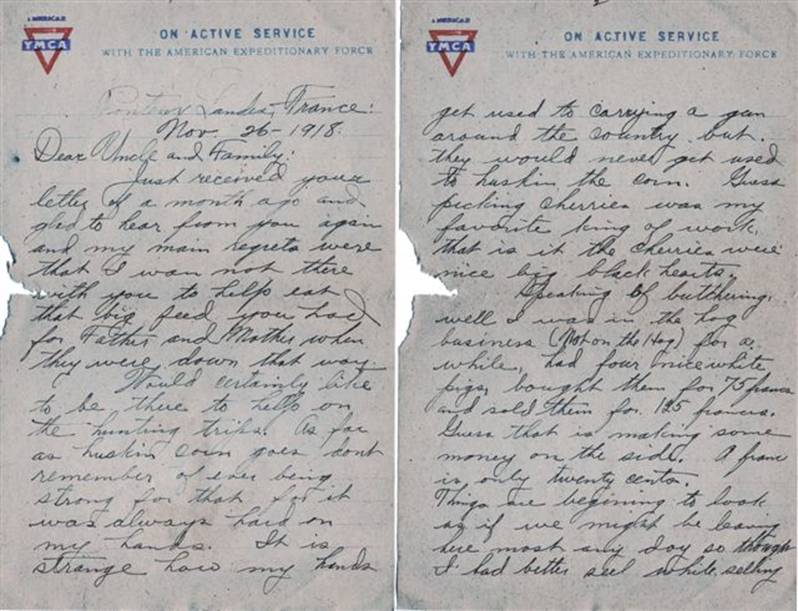 AMERICAN
YMCA
ON ACTIVE SERVICE
WITH THE AMERICAN EXPEDITIONARY FORCE
Pontenx Landes, France:
Nov. 26-1918.
Dear Uncle and Family:
Just received your
letter of a month ago and
glad to hear from you again
and my main regrets were
that I was not there
with you to help eat
that big feed you had
for Father and Mother when
they were down that way.
Would certainly like
to be there to help on
the hunting trips. As far
as huskin corn goes dont
remember of ever being
strong for that for it
was always hard on
my hands. It is
strange how my hands
2
AMERICAN
YMCA
ON ACTIVE SERVICE
WITH THE AMERICAN EXPEDITIONARY FORCE
get used to carrying a gun
around the country but.
they would never get used
to huskin the corn. Guess
picking cherries was my
favorite king of work,
that is if the cherries were
nice big black hearts.
Speaking of butchering,
well I was in the hog
business (Not on the Hog) for a
while, had four nice white
pigs, bought them for 75 francs
and sold them for 125 francs.
Guess that is making some
money on the side. A franc
is only twenty cents.
Things are begining to look
as if we might be leaving
here most any day so though
I had better sell while selling